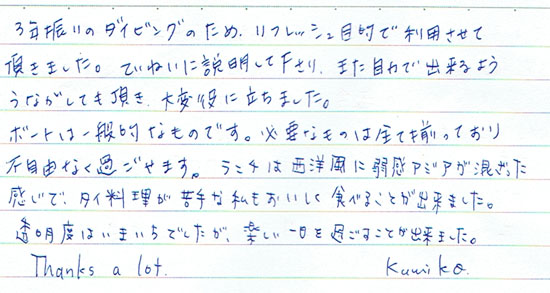 3年振りのダイビングのため、リフレッシュ目的で利用させて
頂きました。ていねいに説明して下さり、また自力で出来るよう
うながしても頂き、大変役に立ちました。
ボートは一般的なものです。必要なものは全て揃っており
不自由なく過ごせます。ランチは西洋風に弱感アジアが混ざった
感じで、タイ料理が苦手な私もおいしく食べることが出来ました。
透明度はいまいちでしたが、楽しい一日を過ごすことが出来ました。
Thanks a lot. Kumiko.